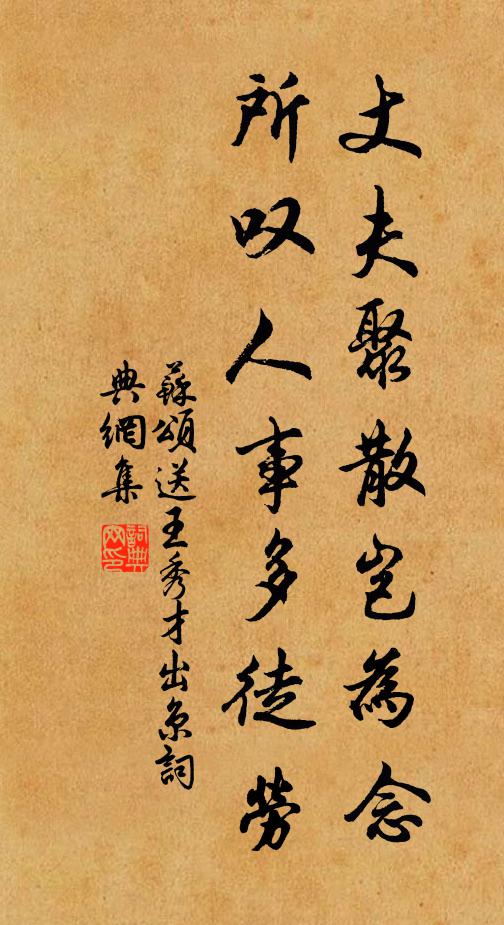 丈夫聚散岂為念
所叹人事多徒勞
蘇頌送王秀才出京詞
典網集
詞典
网印